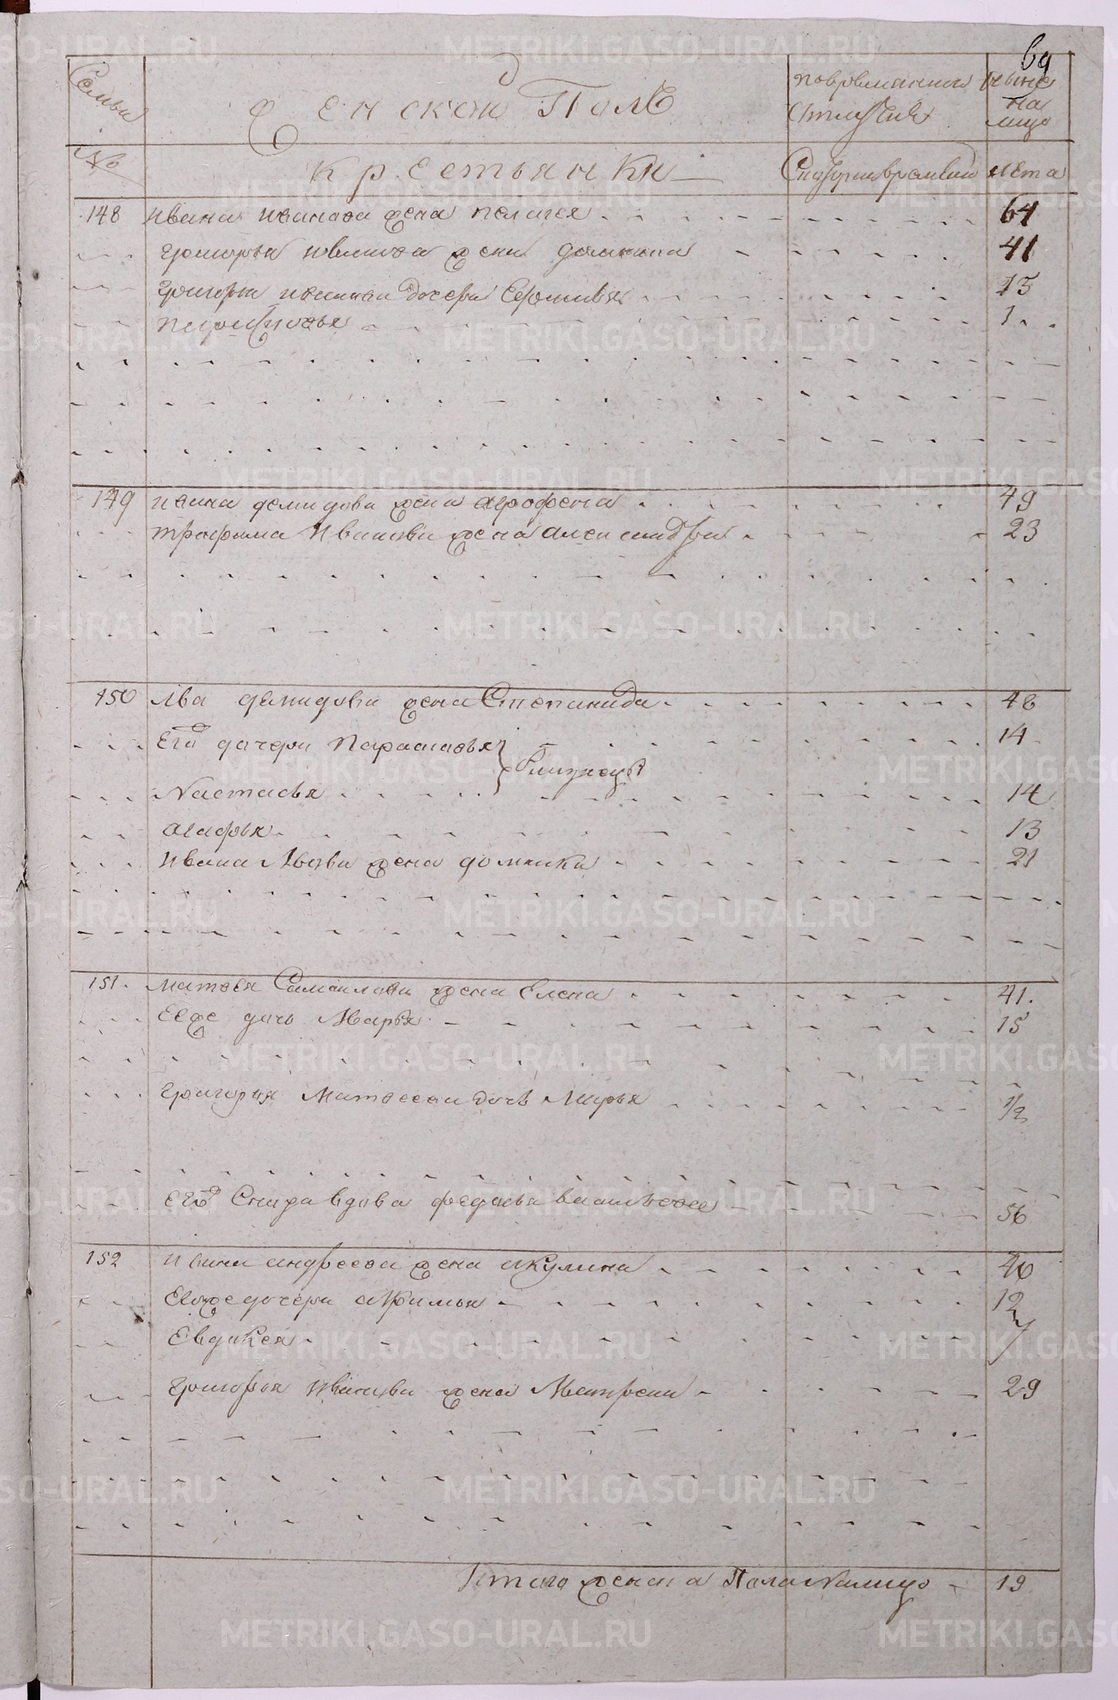 69
Семьи
Женской Полъ
Повремянная Ныне
отлучка на
лицо
№
крестьянки
Скотораго времени лета
148 Ивана Иванова жена Пелагея 64
Григорья Иванова жена Домнина 41
Григорья Иванова дочери Соломия 13
Парасковья 1
149 Ивана Демидова жена Аграфена 49
Трафима Иванова жена Александра 23
150 Лва Демидова жена Степанида 48
Его дочери Парасковья 14
близнецы
Настасья 14
Агафья 13
Ивана Львова жена Домника 21
151 Матвея Самаилова жена Елена 41
Ево же дочь Марья 15
Григорья Матвеева дочь Марья 1/2
Его Сноха вдова Федосья Васильева 56
152 Ивана Андреева жена Акулина 40
Его же дочери Афимья 12
Евдокея 7
Григорья Иванова жена Матрена 29
Итого женска Пола Налицо 19
METRIKI.GASO-URAL.RU